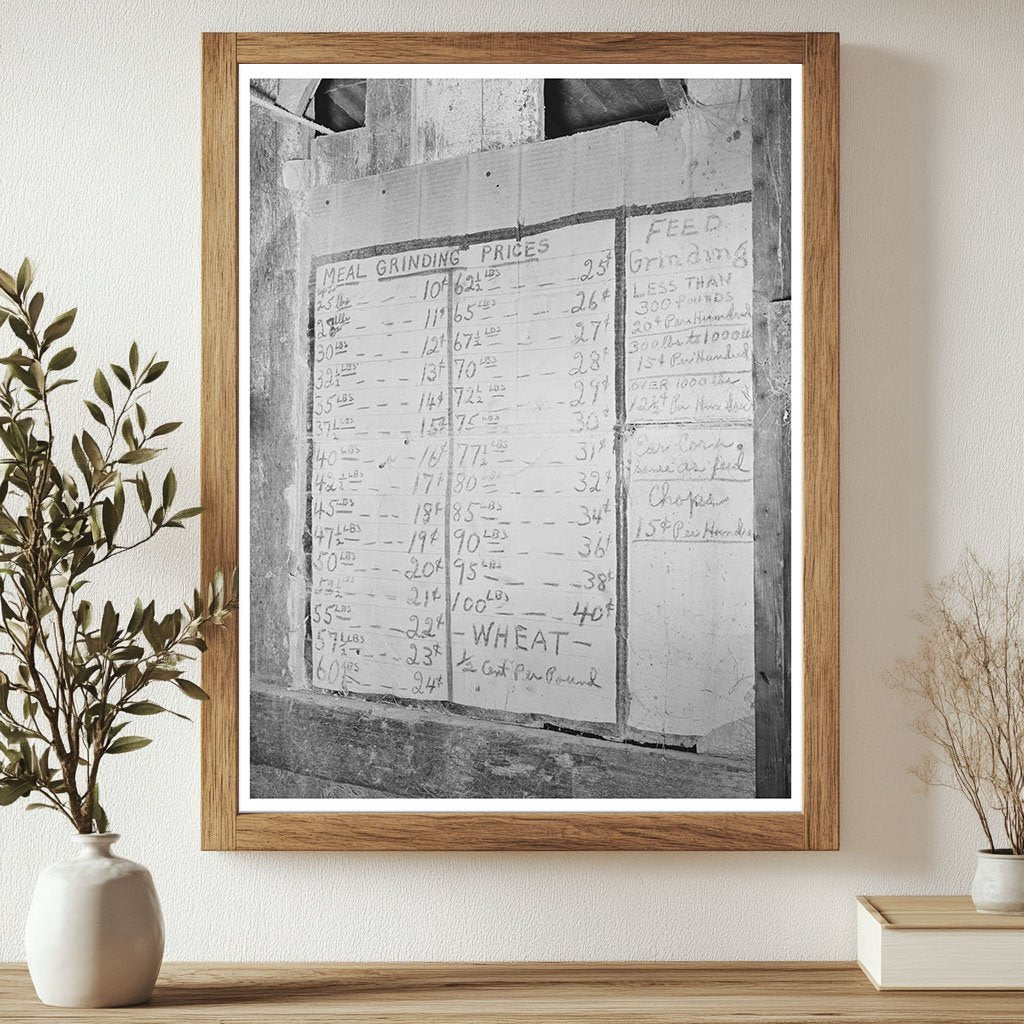 MEAL GRINDING PRICES
25 lbs — — — 10¢
— — — 11¢
30 LBS — — — 12¢
32½ LBS — — — 13¢
35 LBS — — — 14¢
37½ LBS — — — 15¢
40 LBS — — 16¢
42½ LBS — — — 17¢
45 LBS — — — 18¢
47½ LBS — — — 19¢
50 LBS — — — 20¢
— — — 21¢
55 LBS — — — 22¢
57½ LBS — — — 23¢
60 LBS — — — 24¢
62½ LBS — — — 25¢
65 LBS — — — 26¢
67½ LBS — — — 27¢
70 LBS — — — 28¢
72½ LBS — — — 29¢
75 LBS — — — 30¢
77½ LBS — — — 31¢
80 LBS — — — 32¢
85 LBS — — — 34¢
90 LBS — — — 36¢
95 LBS — — — 38¢
100 LBS — — — 40¢
- WHEAT -
½ Cent Per Pound
FEED
Grinding
LESS THAN
300 POUNDS
20¢ Per Hundred
300 lbs to 1000 lbs
15¢ Per Hundred
OVER 1000 lbs
12½¢ Per Hundred
Ear Corn
same as feed
Chops
15¢ Per Hundre